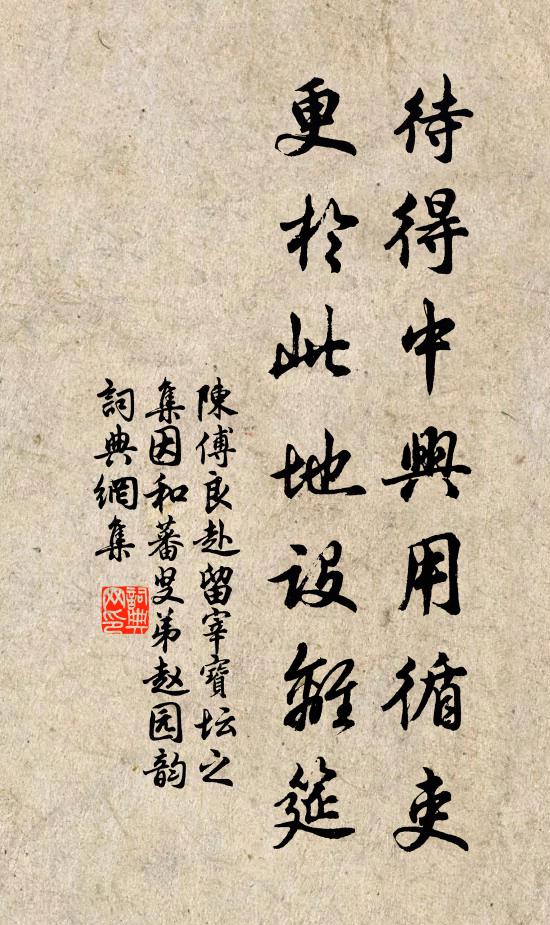 待得中興用循吏
更於此地設離筵
陳傅良赴留宰寶坛之
集因和蕃叟弟赵园韵
詞典網集
詞典网印